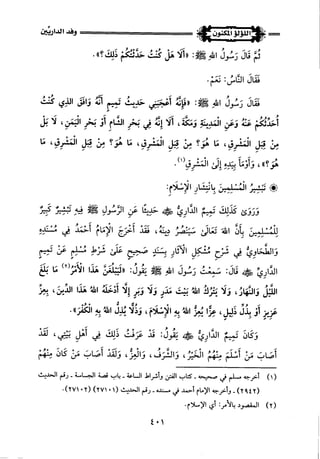 اللؤلؤ المكنون
وفد الداريين
ثُمَّ قَالَ رَسُولُ اللهِ ﷺ: «أَلَا هَلْ كُنْتُ حَدَّثْتُكُمْ ذَلِكَ؟».
فَقَالَ النَّاسُ: نَعَمْ.
فَقَالَ رَسُولُ اللهِ ﷺ: «فَإِنَّهُ أَعْجَبَنِي حَدِيثُ تَمِيمٍ أَنَّهُ وَافَقَ الَّذِي كُنْتُ
أُحَدِّثُكُمْ عَنْهُ وَعَنِ الْمَدِينَةِ وَمَكَّةَ، أَلَا إِنَّهُ فِي بَحْرِ الشَّامِ أَوْ بَحْرِ الْيَمَنِ، لَا بَلْ
مِنْ قِبَلِ الْمَشْرِقِ، مَا هُوَ؟ مِنْ قِبَلِ الْمَشْرِقِ، مَا هُوَ؟ مِنْ قِبَلِ الْمَشْرِقِ، مَا
هُوَ؟»، وَأَوْمَأَ بِيَدِهِ إِلَى الْمَشْرِقِ(١).
* تَبْشِيرُ الْمُسْلِمِينَ بِانْتِشَارِ الْإِسْلَامِ:
وَرَوَى كَذَلِكَ تَمِيمٌ الدَّارِيُّ ﷺ حَدِيثًا عَنِ الرَّسُولِ ﷺ فِيهِ تَبْشِيرٌ كَبِيرٌ
لِلْمُسْلِمِينَ بِأَنَّ اللهَ تَعَالَى سَيَنْصُرُ دِينَهُ، فَقَدْ أَخْرَجَ الْإِمَامُ أَحْمَدُ فِي مُسْنَدِهِ
وَالطَّحَاوِيُّ فِي شَرْحِ مُشْكِلِ الْآثَارِ بِسَنَدٍ صَحِيحٍ عَلَى شَرْطِ مُسْلِمٍ عَنْ تَمِيمٍ
الدَّارِيِّ قَالَ: سَمِعْتُ رَسُولَ اللهِ ﷺ يَقُولُ: «لَيَبْلُغَنَّ هَذَا الْأَمْرُ(٢) مَا بَلَغَ
اللَّيْلُ وَالنَّهَارُ، وَلَا يَتْرُكُ اللهُ بَيْتَ مَدَرٍ وَلَا وَبَرٍ إِلَّا أَدْخَلَهُ اللهُ هَذَا الدِّينَ، بِعِزِّ
عَزِيزٍ أَوْ بِذُلِّ ذَلِيلٍ، عِزًّا يُعِزُّ اللهُ بِهِ الْإِسْلَامَ، وَذُلًّا يُذِلُّ اللهُ بِهِ الْكُفْرَ».
وَكَانَ تَمِيمٌ الدَّارِيُّ يَقُولُ: قَدْ عَرَفْتُ ذَلِكَ فِي أَهْلِ بَيْتِي، لَقَدْ
أَصَابَ مَنْ أَسْلَمَ مِنْهُمُ الْخَيْرُ، وَالشَّرَفُ، وَالْعِزُّ، وَلَقَدْ أَصَابَ مَنْ كَانَ مِنْهُمْ
(١) أخرجه مسلم في صحيحه ـ كتاب الفتن وأشراط الساعة ـ باب قصة الجساسة ـ رقم الحديث
(٢٩٤٢) ـ وأخرجه الإمام أحمد في مسنده ـ رقم الحديث (٢٧١٠١) (٢٧١٠٢).
(٢) المقصود بالأمر: أي الإسلام.
٤٠١